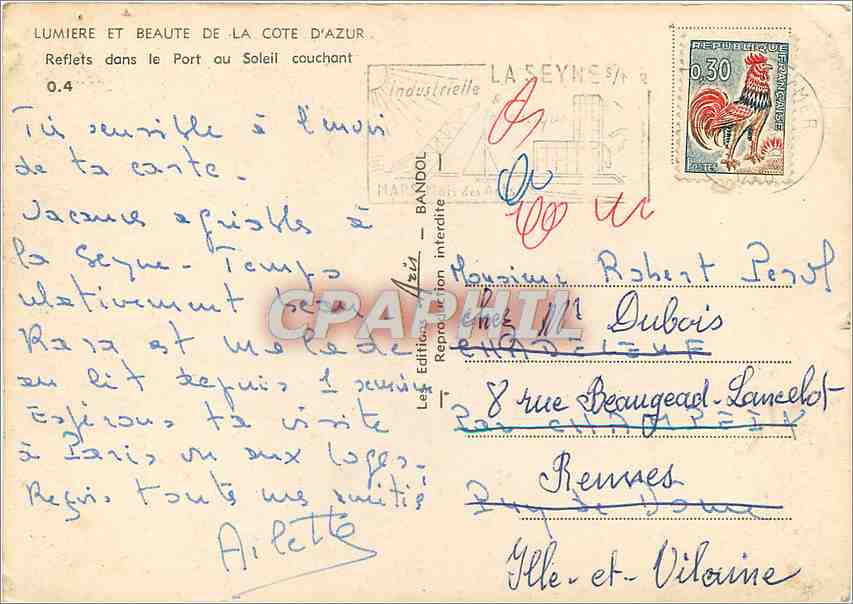 LUMIERE ET BEAUTE DE LA COTE D'AZUR
Reflets dans le Port au Soleil couchant
0.4
Très sensible à l'envoi
de ta carte.
Vacances agréables à
la Seyne. Temps
relativement beau
est malade
au lit depuis 1 semaine
Espérons ta visite
à Paris ou aux Loges.
Reçois toute mes amitiés
Ailette
Les Editions Aris - BANDOL
Reproduction interdite
industrielle
LA SEYNE S/MER
MARS Mois des Arts
REPUBLIQUE FRANÇAISE
0,30
POSTES
Monsieur Robert
chez Mr Dubois
8 rue Beaugead-Lancelot
Par
Rennes
Puy de Dome
Ille-et-Vilaine
CPARPHIL